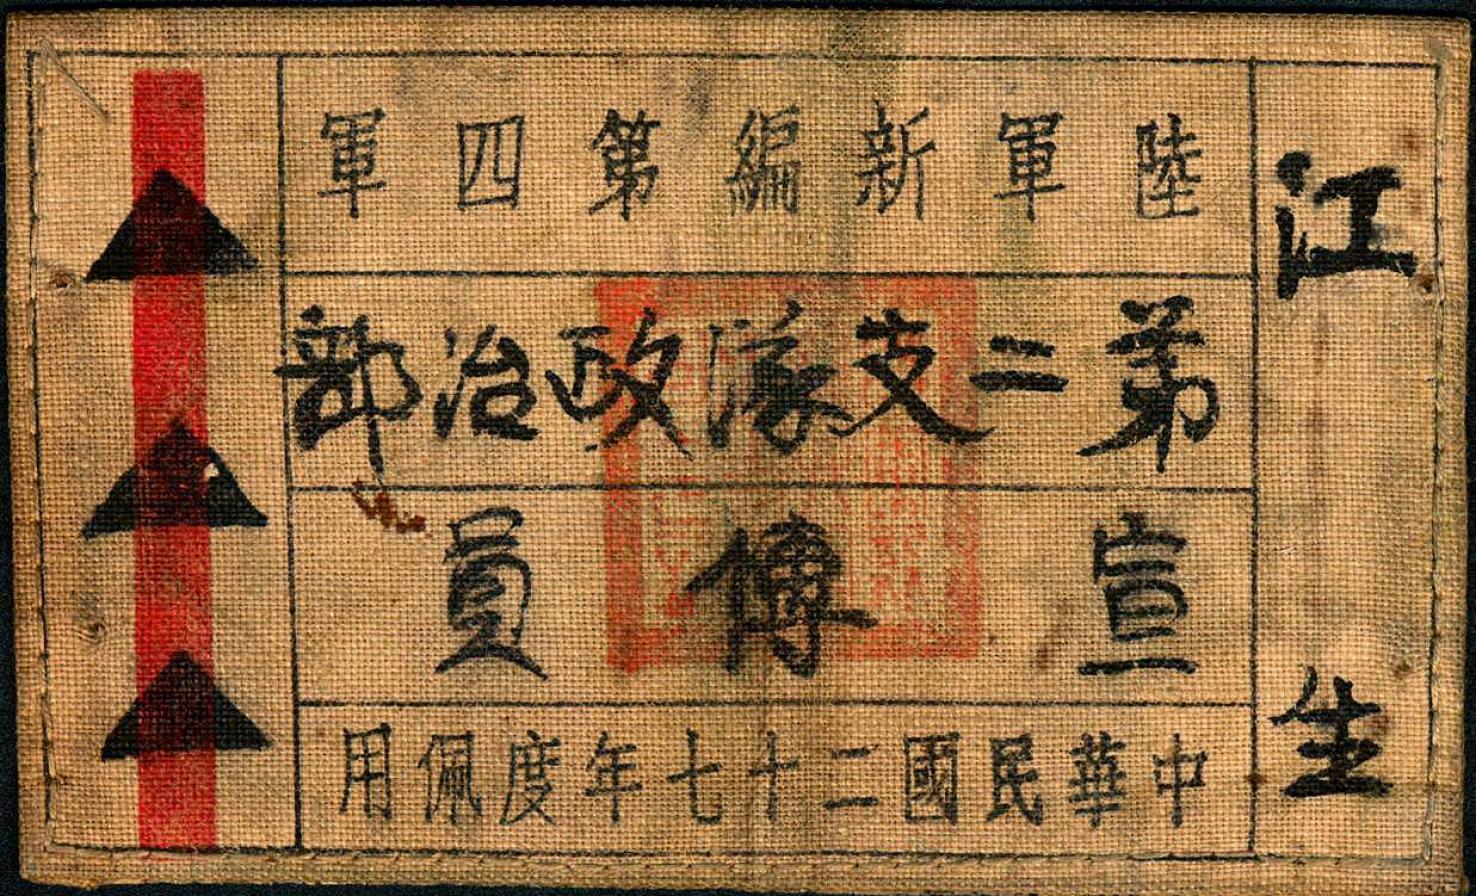 江生
陸軍新編第四軍
第二支隊政治部
宣傳員
中華民國二十七年度佩用